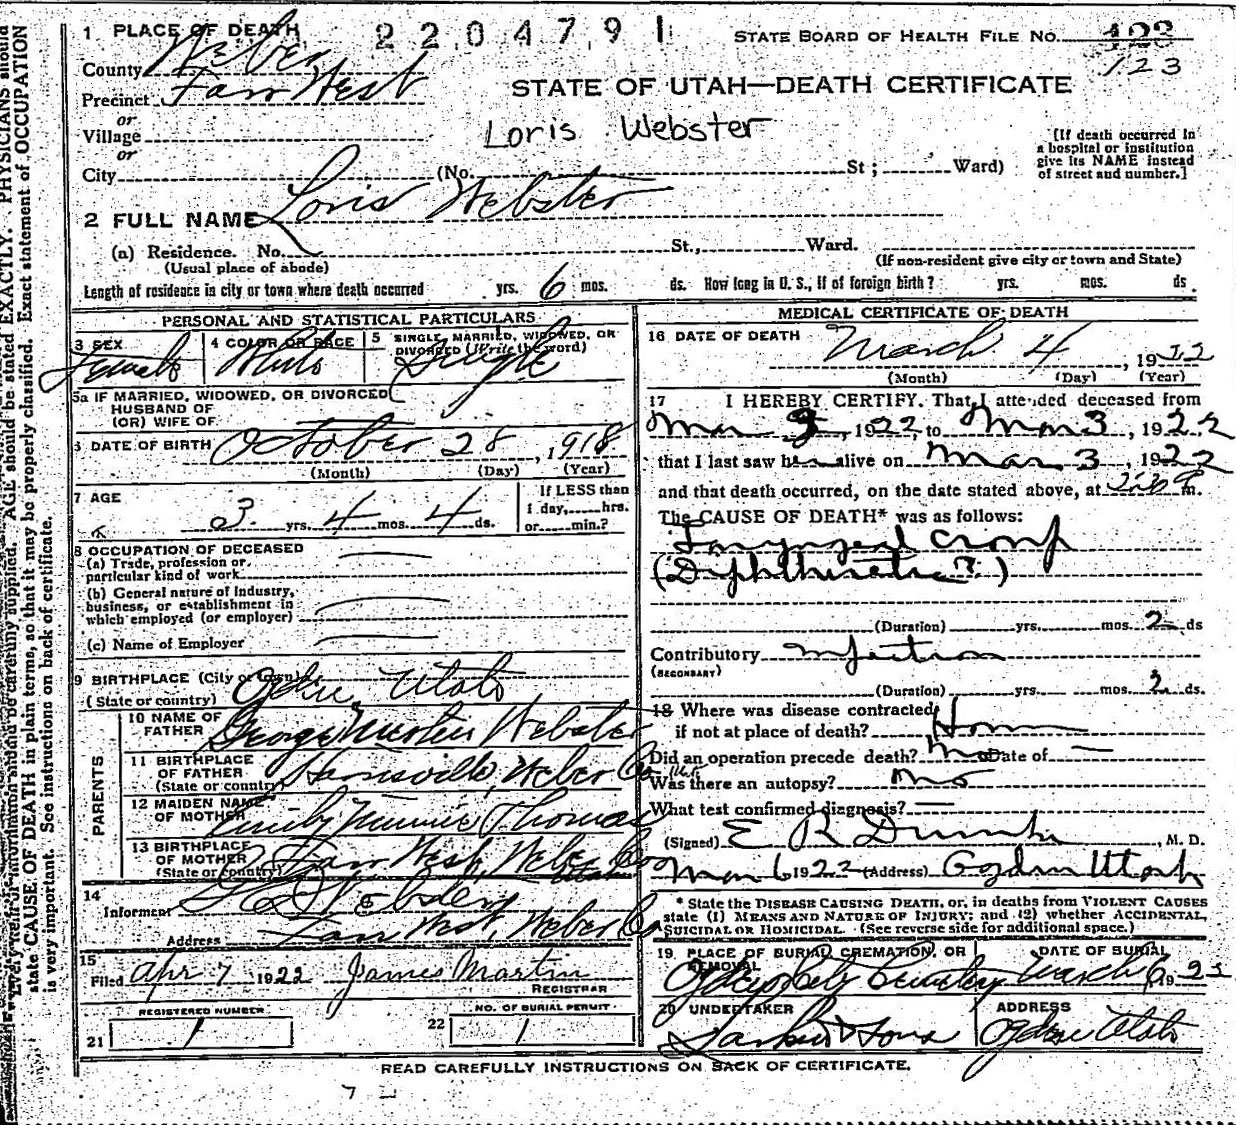 1 PLACE OF DEATH
2204791
STATE BOARD OF HEALTH FILE NO. 123
123
County Weber
STATE OF UTAH—DEATH CERTIFICATE
Precinct Farr West
or
Village
Loris Webster
or
City (No. St ; Ward)
[If death occurred in
a hospital or institution
give its NAME instead
of street and number.]
2 FULL NAME Loris Webster
(a) Residence. No. St., Ward.
(Usual place of abode)
(If non-resident give city or town and State)
Length of residence in city or town where death occurred yrs. 6 mos. ds. How long in U. S., if of foreign birth? yrs. mos. ds.
PERSONAL AND STATISTICAL PARTICULARS
3 SEX Female
4 COLOR OR RACE White
5 SINGLE, MARRIED, WIDOWED, OR
DIVORCED (Write the word) Single
5a IF MARRIED, WIDOWED, OR DIVORCED
HUSBAND OF
(OR) WIFE OF
6 DATE OF BIRTH October 28, 1918
(Month) (Day) (Year)
7 AGE
3 yrs. 4 mos. 4 ds.
If LESS than
1 day, hrs.
or min.?
8 OCCUPATION OF DECEASED
(a) Trade, profession or
particular kind of work
(b) General nature of Industry,
business, or establishment in
which employed (or employer)
(c) Name of Employer
9 BIRTHPLACE (City or town)
(State or country) Ogden Utah
PARENTS
10 NAME OF
FATHER George Webster
11 BIRTHPLACE
OF FATHER
(State or country) Harrisville, Weber Co
12 MAIDEN NAME
OF MOTHER Emily Minnie Thomas
13 BIRTHPLACE
OF MOTHER
(State or country) Farr West, Weber Co
Utah
14
Informent Webster
Address Farr West, Weber Co
15
Filed Apr 7 1922 James Martin
REGISTRAR
REGISTERED NUMBER
21 1
NO. OF BURIAL PERMIT
22 1
MEDICAL CERTIFICATE OF DEATH
16 DATE OF DEATH
March 4, 1922
(Month) (Day) (Year)
17 I HEREBY CERTIFY. That I attended deceased from
Mar 3, 1922, to Mar 3, 1922
that I last saw h alive on Mar 3, 1922
and that death occurred, on the date stated above, at m.
The CAUSE OF DEATH* was as follows:
Laryngeal Croup
(Diphtheretic?)
(Duration) yrs. mos. 2 ds
Contributory Infection
(SECONDARY)
(Duration) yrs. mos. 2 ds.
18 Where was disease contracted
if not at place of death? Home
Did an operation precede death? no Date of
Was there an autopsy? no
What test confirmed diagnosis?
(Signed) E R Dumke, M. D.
Mar 6 1922 (Address) Ogden Utah
* State the DISEASE CAUSING DEATH, or, in deaths from VIOLENT CAUSES
state (1) MEANS AND NATURE OF INJURY; and (2) whether ACCIDENTAL,
SUICIDAL OR HOMICIDAL. (See reverse side for additional space.)
19 PLACE OF BURIAL CREMATION, OR
REMOVAL
Ogden City Cemetery
DATE OF BURIAL
March 6 1922
20 UNDERTAKER
Larkin & Sons
ADDRESS
Ogden Utah
READ CAREFULLY INSTRUCTIONS ON BACK OF CERTIFICATE.
AGE should be stated EXACTLY. PHYSICIANS should
state CAUSE OF DEATH in plain terms, so that it may be properly classified. Exact statement of OCCUPATION
is very important. See instructions on back of certificate.